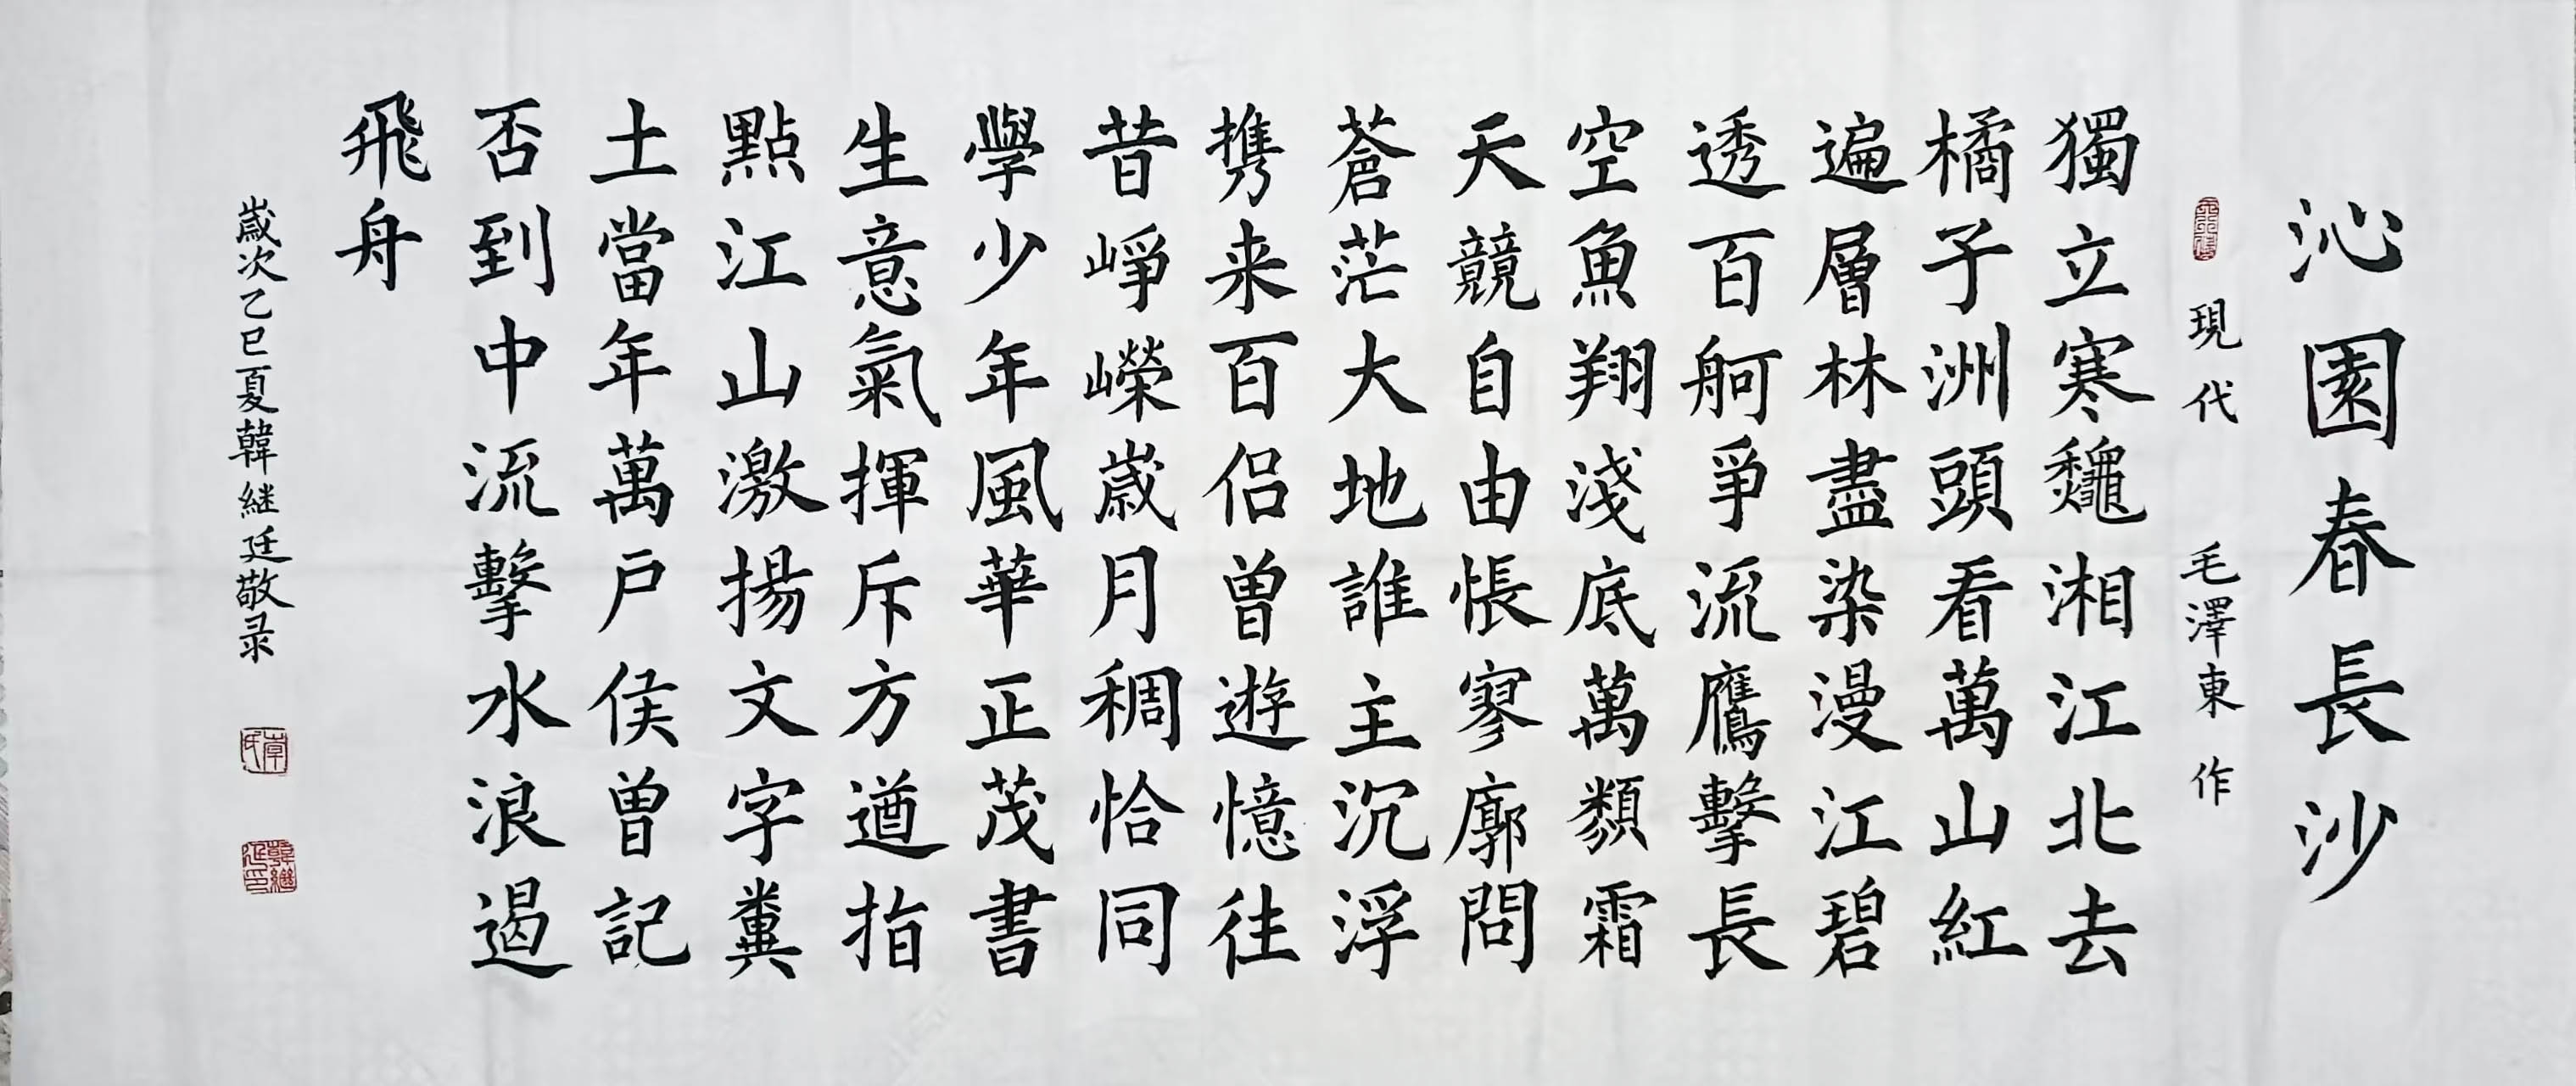 沁園春長沙
現代 毛澤東 作
獨立寒龝湘江北去
橘子洲頭看萬山紅
遍層林盡染漫江碧
透百舸爭流鷹擊長
空魚翔淺底萬類霜
天競自由悵寥廓問
蒼茫大地誰主沉浮
携来百侣曾遊憶往
昔崢嶸歲月稠恰同
學少年風華正茂書
生意氣揮斥方遒指
點江山激揚文字糞
土當年萬户侯曾記
否到中流擊水浪遏
飛舟
歲次乙巳夏韓継廷敬录